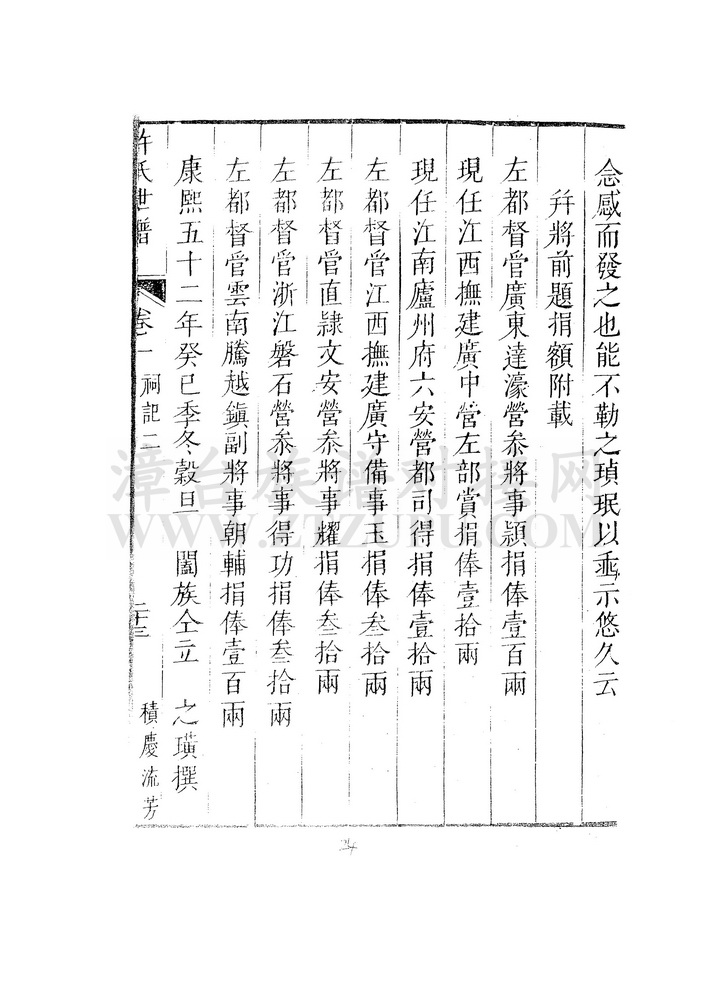 念感而發之也能不勒之瑣珉以垂示悠久云
幷將前題捐額附載
左都督管廣東達濠營叅將事頴捐俸壹百兩
現任江西撫建廣中營左部賞捐俸壹拾兩
現任江南廬州府六安營都司得捐俸壹拾兩
左都督管江西撫建廣守備事玉捐俸叁拾兩
左都督管直隷文安營叅將事耀捐俸叁拾兩
左都督管浙江磐石營叅將事得功捐俸叁拾兩
左都督管雲南騰越鎮副將事朝輔捐俸壹百兩
康熙五十二年癸巳季冬穀旦 闔族仝立 之璜撰
許氏世譜 卷一 祠記二 二十三 積慶流芳
漳台族谱对接网
WWW.ZTZUPU.COM
24